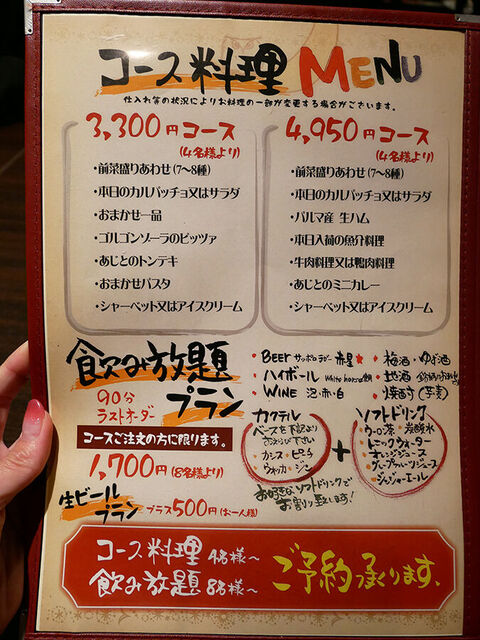 コース料理 MENU
仕入れ等の状況によりお料理の一部が変更する場合がございます。
3,300円コース
(4名様より)
・前菜盛りあわせ(7〜8種)
・本日のカルパッチョ又はサラダ
・おまかせ一品
・ゴルゴンゾーラのピッツァ
・あじとのトンテキ
・おまかせパスタ
・シャーベット又はアイスクリーム
4,950円コース
(4名様より)
・前菜盛りあわせ(7〜8種)
・本日のカルパッチョ又はサラダ
・パルマ産 生ハム
・本日入荷の魚介料理
・牛肉料理又は鴨肉料理
・あじとのミニカレー
・シャーベット又はアイスクリーム
飲み放題
プラン
90分
ラストオーダー
コースご注文の方に限ります。
1,700円(8名様より)
生ビール
プラン プラス500円(お一人様)
・BEER サッポロラガー 赤星★
・ハイボール White horse
・WINE 泡・赤・白
・梅酒・ゆず酒
・地酒
・焼酎(芋・麦)
カクテル
ベースを下記より
お選び下さい
・カシス・ピーチ
・ウォッカ・ジン
+
ソフトドリンク
・ウーロン茶・炭酸水
・トニックウォーター
・オレンジジュース
・グレープフルーツジュース
・ジンジャーエール
お好きなソフトドリンクで
お割り致します!
コース料理 4名様〜
飲み放題 8名様〜
ご予約承ります。